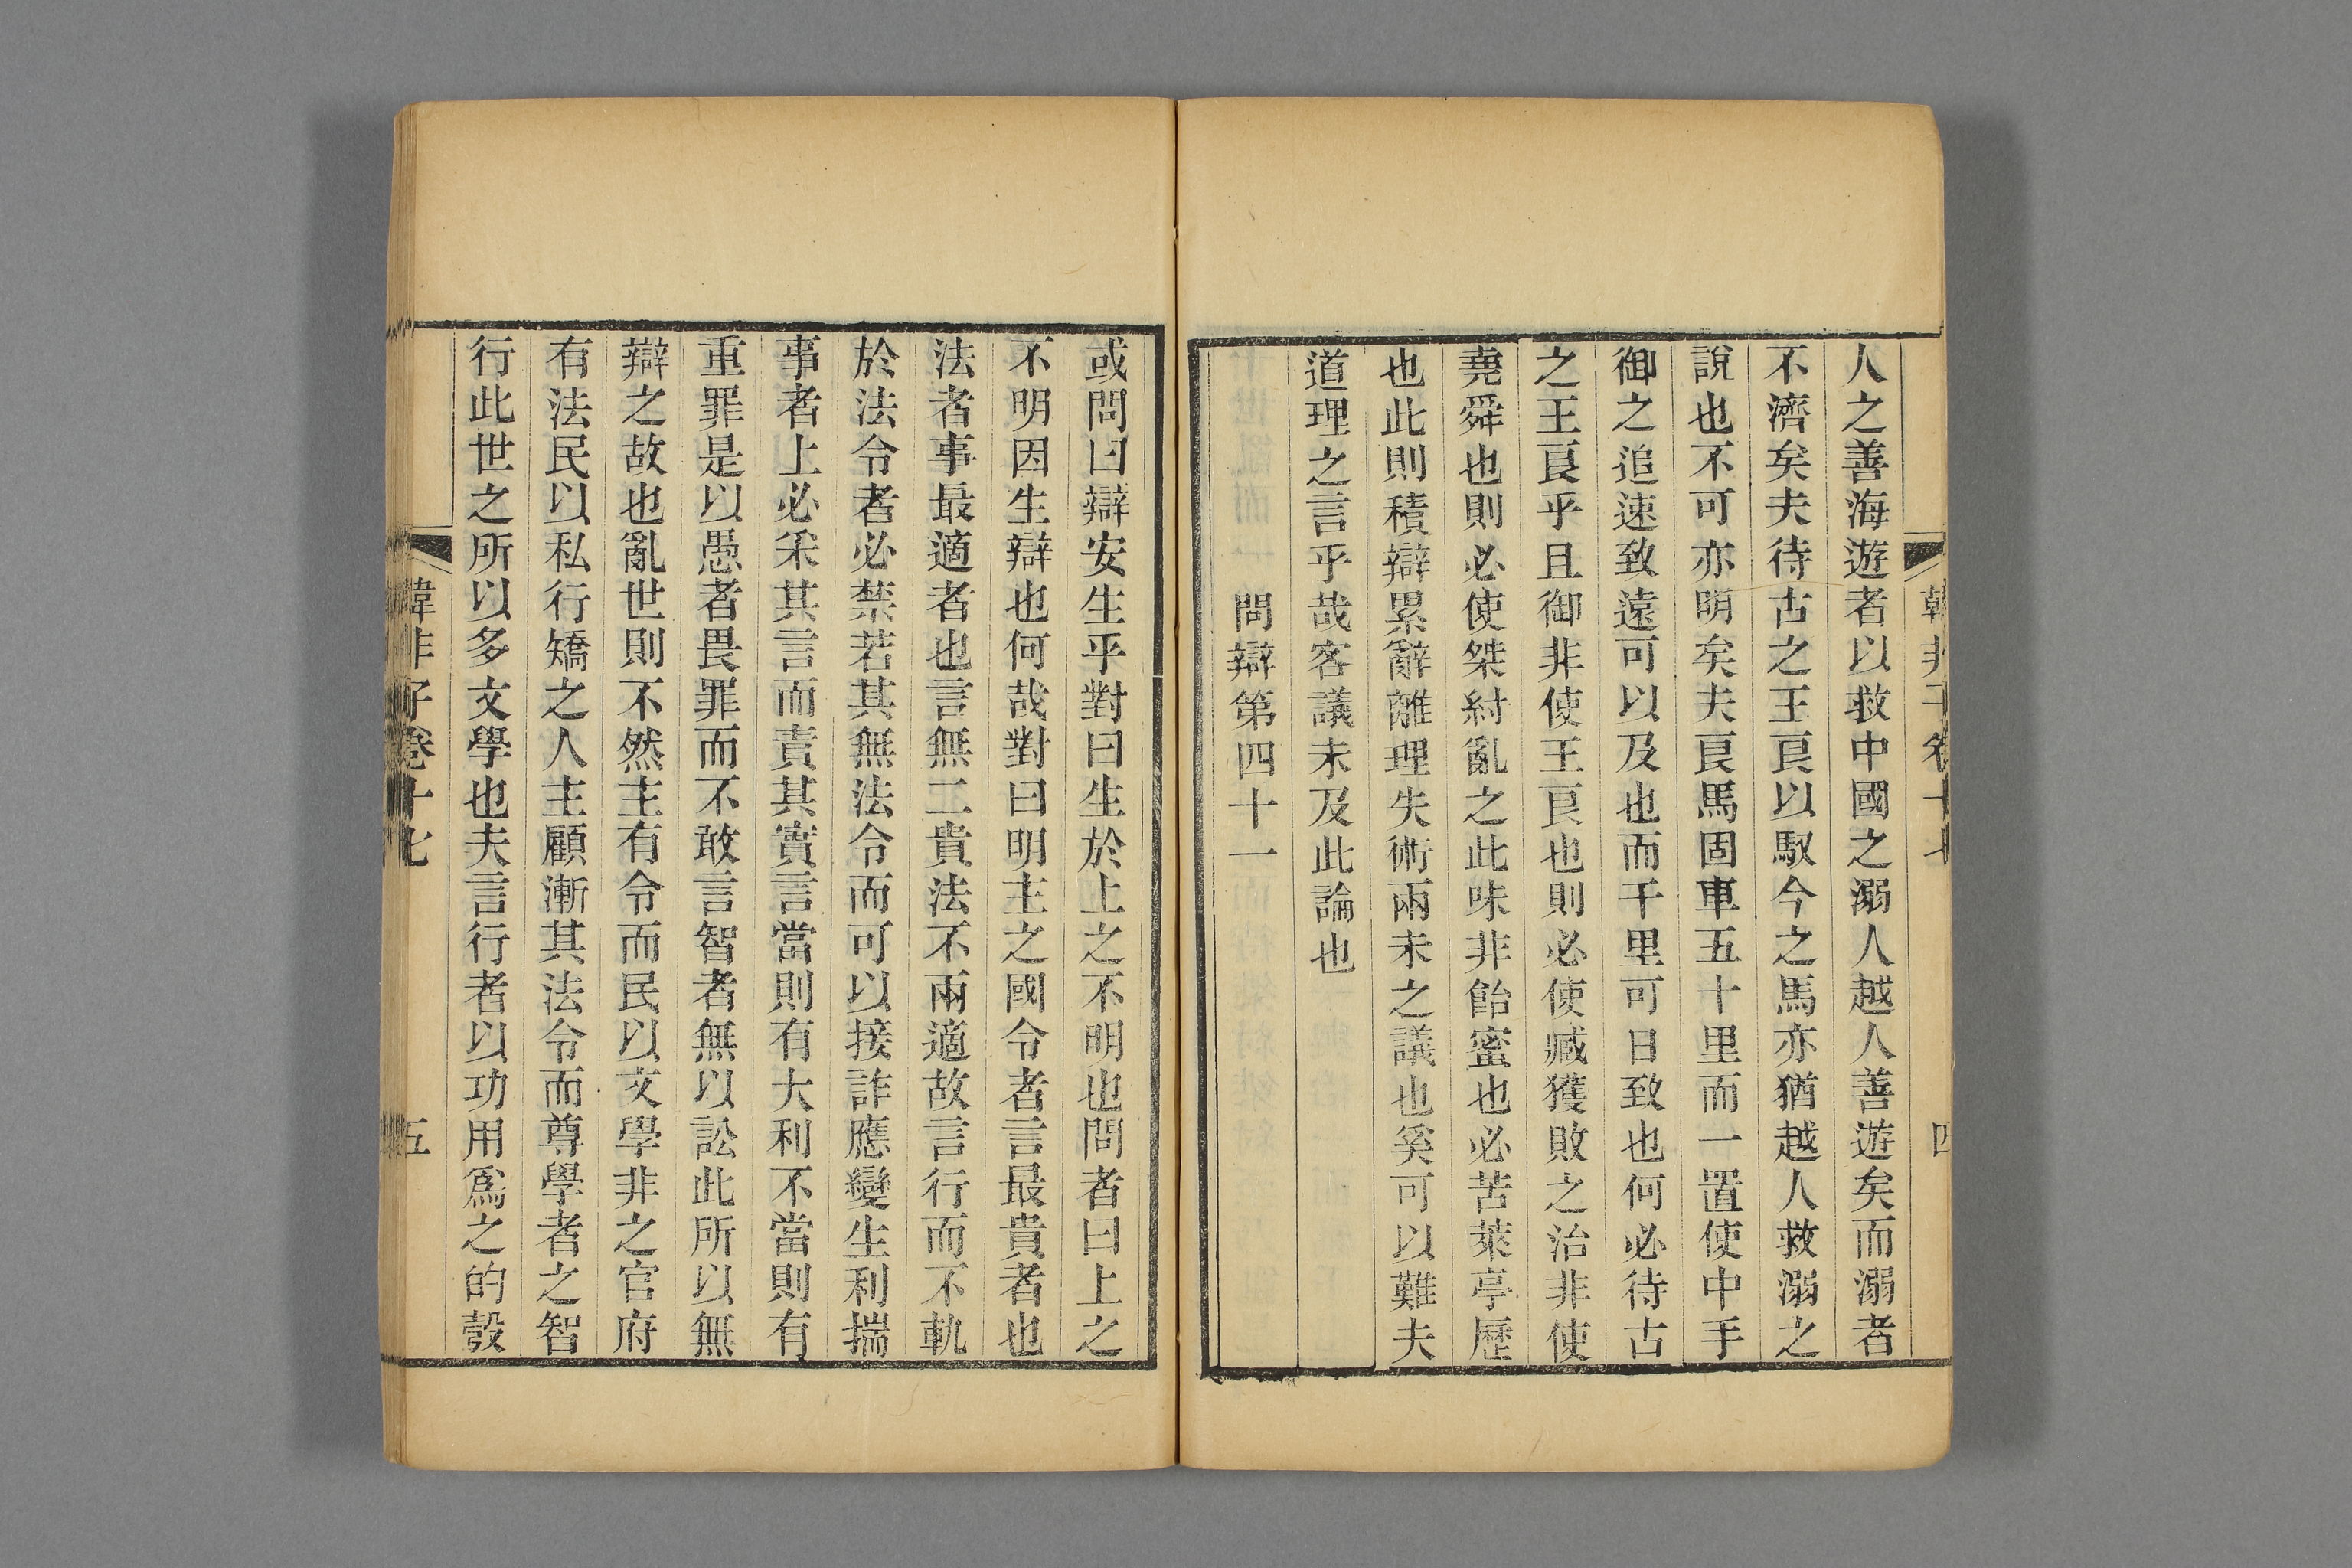 韓非子卷十七
四
人之善海遊者以救中國之溺人越人善遊矣而溺者
不濟矣夫待古之王良以馭今之馬亦猶越人救溺之
說也不可亦明矣夫良馬固車五十里而一置使中手
御之追速致遠可以及也而千里可日致也何必待古
之王良乎且御非使王良也則必使臧獲敗之治非使
堯舜也則必使桀紂亂之此味非飴蜜也必苦萊亭歷
也此則積辯累辭離理失術兩未之議也奚可以難夫
道理之言乎哉客議未及此論也
問辯第四十一
或問曰辯安生乎對曰生於上之不明也問者曰上之
不明因生辯也何哉對曰明主之國令者言最貴者也
法者事最適者也言無二貴法不兩適故言行而不軌
於法令者必禁若其無法令而可以接詐應變生利揣
事者上必采其言而責其實言當則有大利不當則有
重罪是以愚者畏罪而不敢言智者無以訟此所以無
辯之故也亂世則不然主有令而民以文學非之官府
有法民以私行矯之人主顧漸其法令而尊學者之智
行此世之所以多文學也夫言行者以功用爲之的彀
韓非子卷十七
五